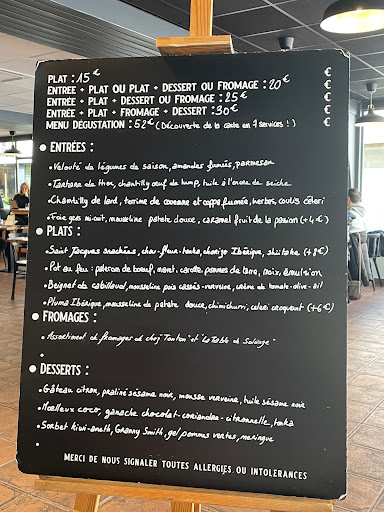 PLAT : 15 €
ENTREE + PLAT OU PLAT + DESSERT OU FROMAGE : 20 €
€
ENTRÉE + PLAT + DESSERT OU FROMAGE : 25 €
€
ENTRÉE + PLAT + FROMAGE + DESSERT : 30 €
€
MENU DÉGUSTATION : 52 € (Découverte de la carte en 7 services !)
€
€
• ENTRÉES :
• Velouté de légumes de saison, amandes fumés, parmesan
• Tartare de thon, chantilly œuf de lump, tuile à l'encre de seiche
• Chantilly de lard, terrine de couenne et coppa fumée, herbes, coulis céleri
• Foie gras micuit, mousseline patate douce, caramel fruit de la passion (+4€)
• PLATS :
• Saint Jacques snackées, chou-fleur-tonka, chorizo Ibérique, shiitake (+8€)
• Pot au feu : paleron de bœuf, navet, carotte, pommes de terre, noix, émulsion
• Beignet de cabillaud, mousseline pois cassés-verveine, crème de tomate-ail
• Pluma Ibérique, mousseline de patate douce, chimichurri, celeri croquant (+6€)
• FROMAGES :
• Assortiment de fromages de chez "Tonton" et "La Table de Solange"
•
• DESSERTS :
• Gâteau citron, praliné sésame noir, mousse verveine, tuile sésame noir
• Moelleux coco, ganache chocolat-coriandre-citronnelle, tonka
• Sorbet kiwi-aneth, Granny Smith, gel pommes vertes, meringue
•
MERCI DE NOUS SIGNALER TOUTES ALLERGIES OU INTOLÉRANCES